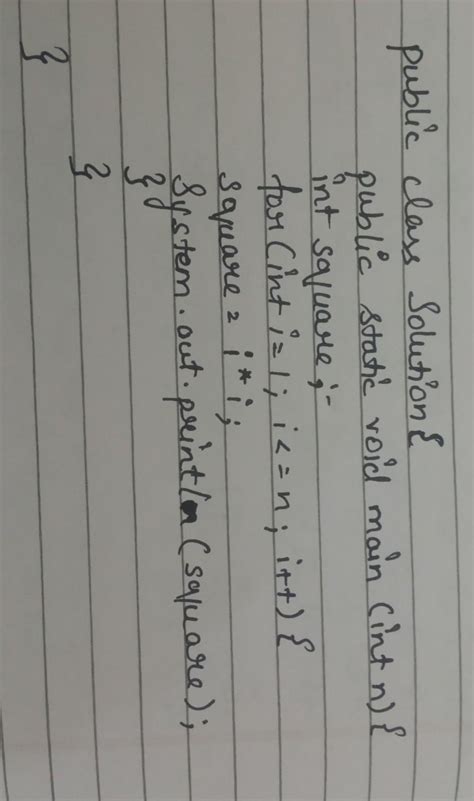 public class Solution{
public static void main (int n) {
int square;
for(int i=1; i<=n; i++) {
square = i*i;
System.out.println (square);
}
}
}